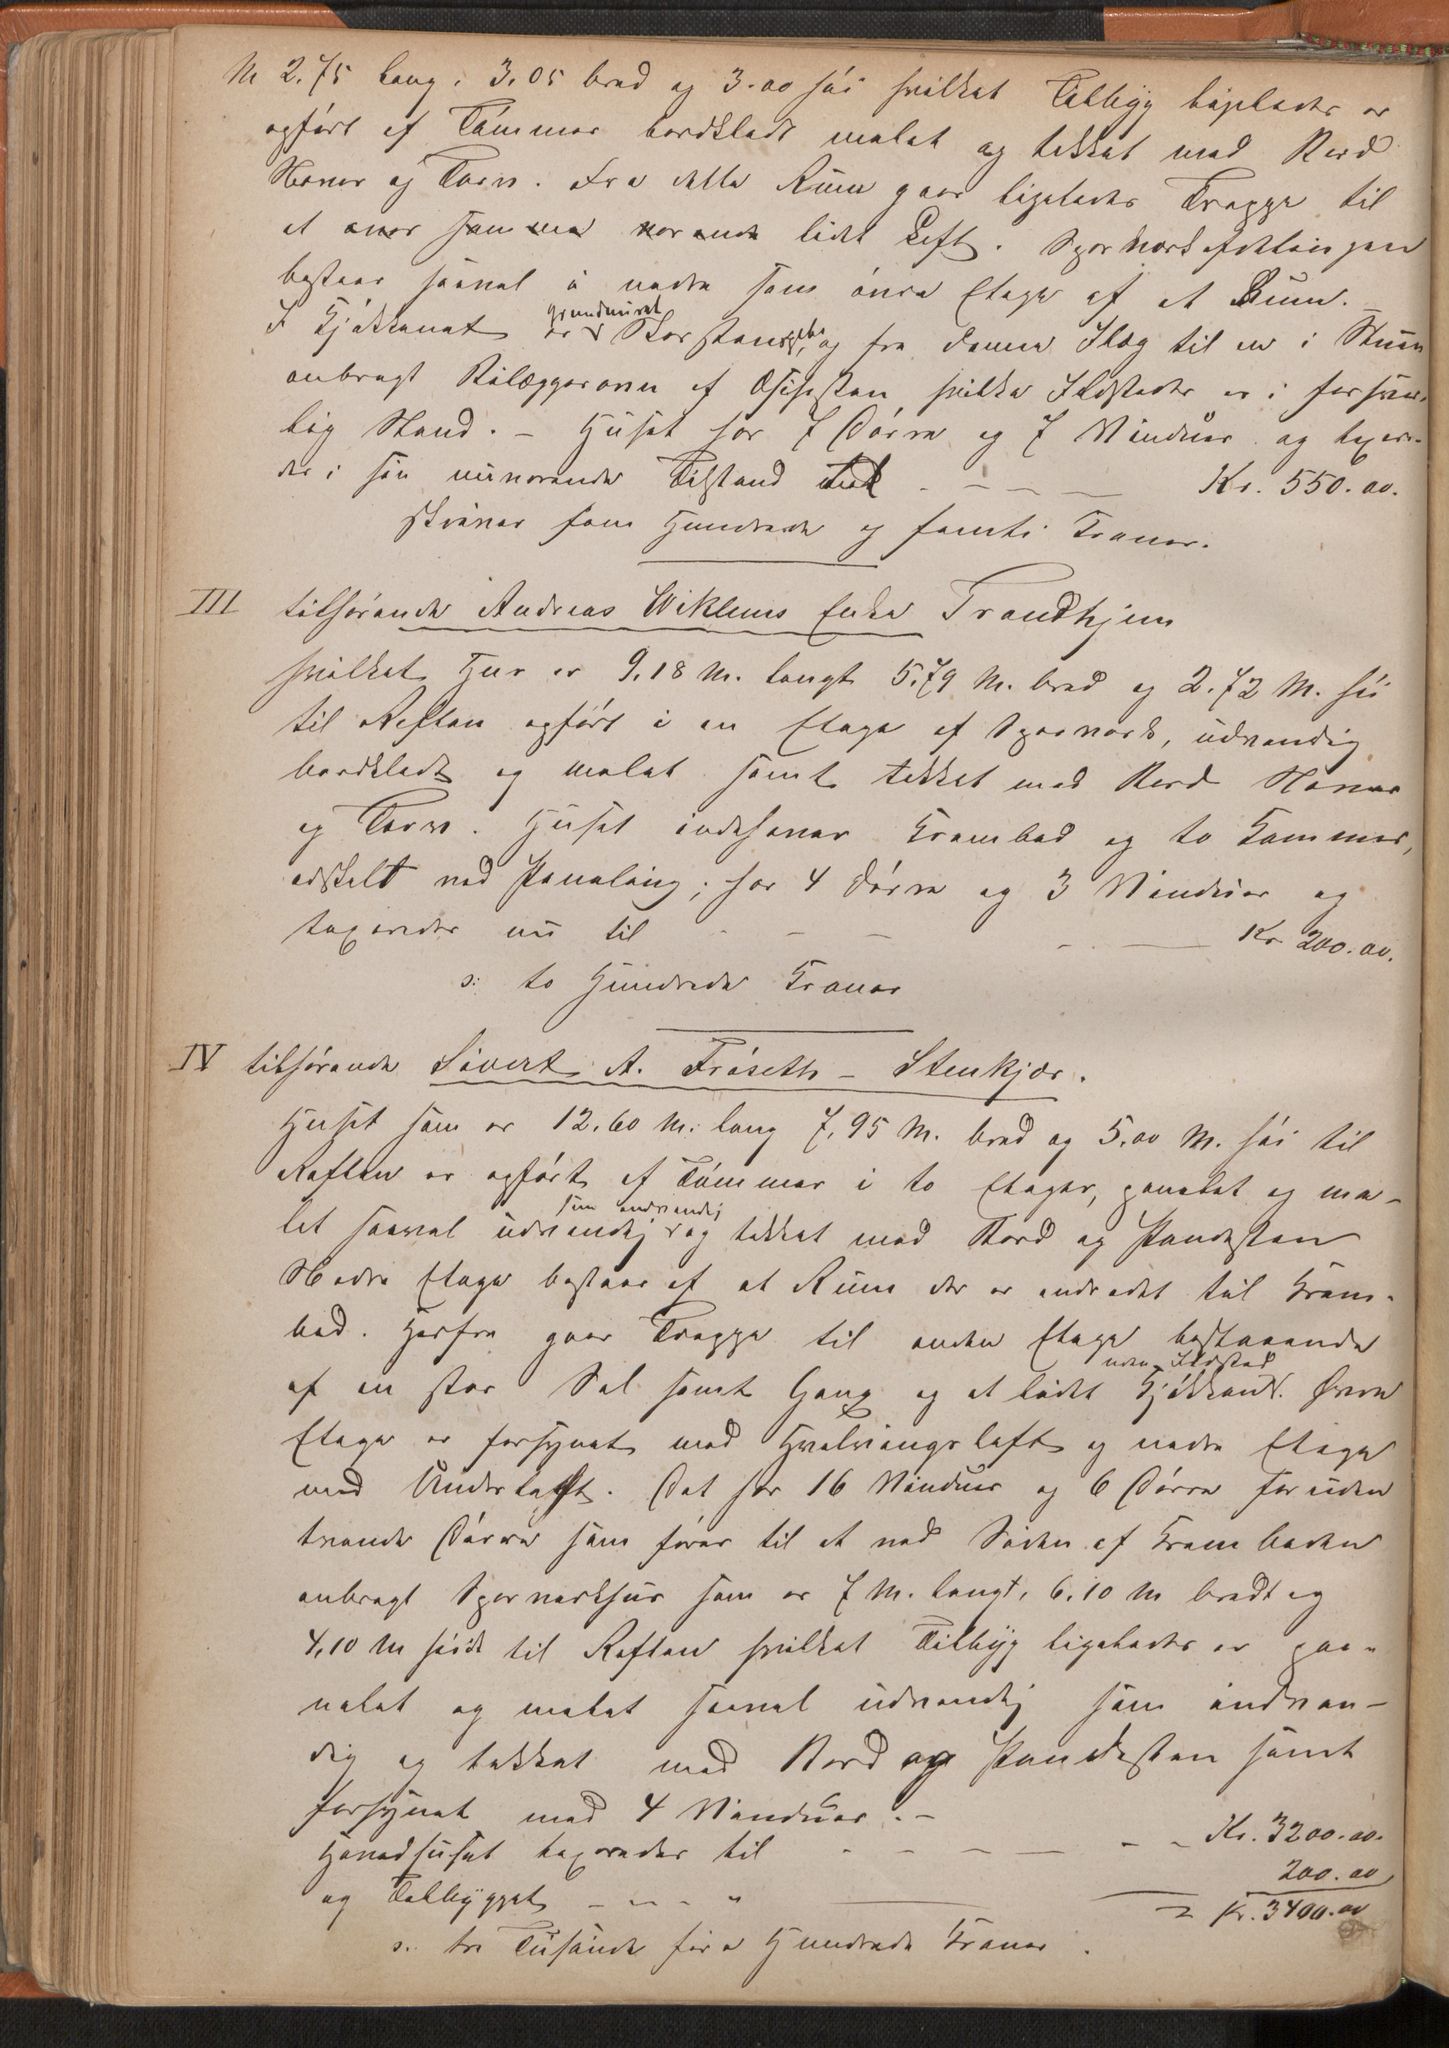 M 2.75 lang, 3.05 bred og 3.00 høi hvilket Tilbyg ligeledes er
opført af Tømmer bordklædt malet og tækket med Bord
Næver og Torv. Fra dette Rum gaar ligeledes Trappe til
et over samme værende lidet Loft. Sperværksafdelingen
bestaar saavel i nedre som øvre Etage af et Rum. –
I Kjøkkenet er grundmuret Skorsten og fra denne Ilæg til en i Stuen
anbragt Bilæggerovn af Vegsten hvilke Ildsteder er i forsvar-
lig Stand. – Huset har 7 Døre og 7 Vinduer og taxer-
des i sin nuværende Tilstand til - - - - Kr. 550.00.
skriver fem Hundrede og femti Kroner.
III tilhørende Andreas Wiklems Enke Trondhjem
hvilket Hus er 9.18 M. langt 5.79 M. bred og 2.72 M. høi
til Røften opført i en Etage af Sperværk, udvendig
bordklædt og malet samt tækket med Bord Næver
og Torv. Huset indehaver Krambod og to Kammer,
adskilt ved Panaling; har 4 Døre og 3 Vinduer og
taxeredes nu til - - - - Kr 200.00.
s: to Hundrede Kroner
IV tilhørende Sivert A. Frøseth – Stenkjær.
Huset som er 12.60 M. lang 7,95 M. bred og 5.00 M. høi til
Røften er opført af Tømmer i to Etager, panelet og ma-
let saavel udvendig som indvendig og tækket med Bord og Pandesten
Nedre Etage bestaar af et Rum der er indredet til Kram-
bod. Herfra gaar Trappe til anden Etage bestaaende
af en stor Sal samt Gang og et lidet Kjøkken uden Ildsted. Øvre
Etage er forsynet med Hvælvingsloft og nedre Etage
med Underloft. Det har 16 Vinduer og 6 Døre foruden
tvende Døre som fører til et ved Siden af Kramboden
anbragt Sperværkshus som er 7 M. langt, 6.10 M bredt og
4,10 M høidt til Røften hvilket Tilbyg ligeledes er paa-
nelet og malet saavel udvendig som indven-
dig og tækket med Bord og Pandesten samt
forsynet med 4 Vinduer. –
Hovedhuset taxeredes til - - - - - Kr. 3200.00.
og Tilbygget - " - " 200.00
= Kr. 3400.00
s: tre Tusinde fire Hundrede Kroner.